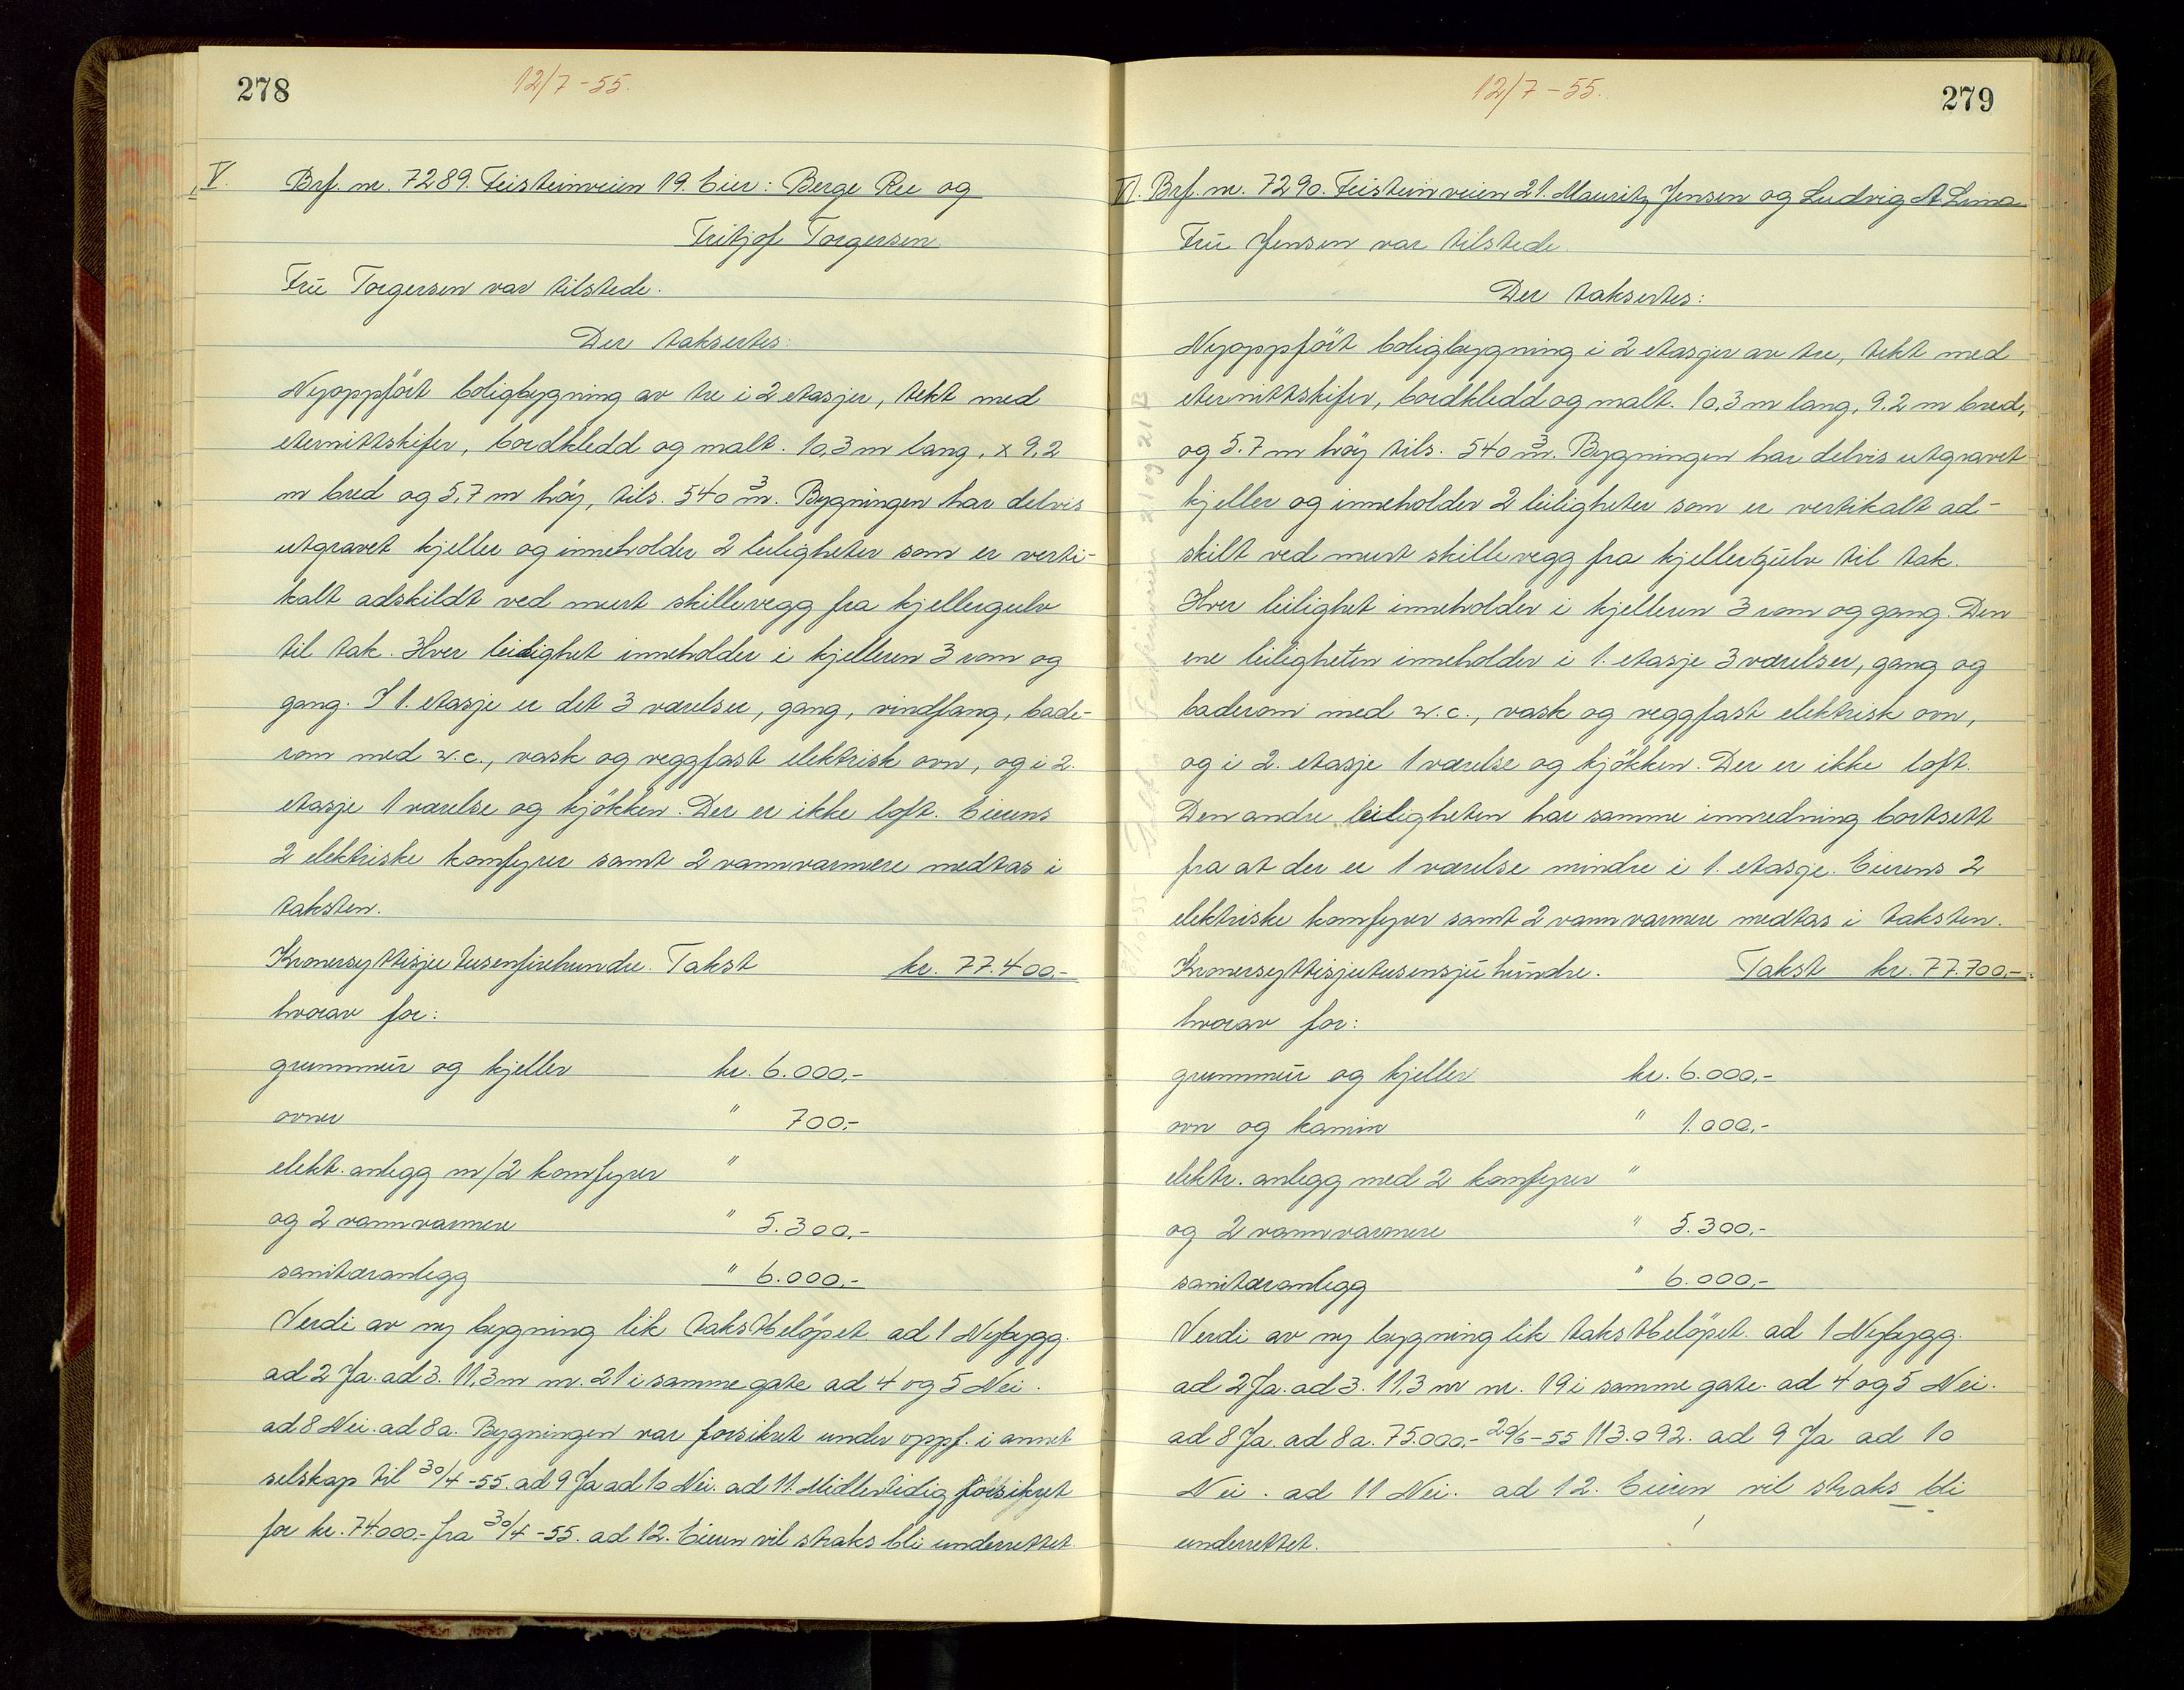 278
12/7-55.
V. Brf. nr. 7289. Feisteinveien 19. Eier: Berge Ree og
Fritjof Torgersen
Frü Torgersen var tilstede.
Der taksertes:
Nyoppfört boligbygning av tre i 2 etasjer, tekt med
eternittskifer, bordkledd og malt. 10,3 m lang, x 9,2
m bred og 5,7 m høy, tils. 540 m³. Bygningen har delvis
utgravet kjeller og inneholder 2 leiligheter som er verti-
kalt adskildt ved murt skillevegg fra kjellergulv
til tak. Hver leilighet inneholder i kjelleren 3 rom og
gang. I 1. etasje er det 3 værelser, gang, vindfang, bade-
rom med w.c., vask og veggfast elektrisk ovn, og i 2.
etasje 1 værelse og kjökken. Der er ikke loft. Eierens
2 elektriske komfyrer samt 2 vannvarmere medtas i
taksten.
Kronersyttisjutusenfirehundre. Takst kr. 77.400.-
hvorav for:
grunnmür og kjeller kr. 6.000,-
ovner " 700.-
elekt. anlegg m/2 komfyrer "
og 2 vannvarmere " 5.300,-
sanitæranlegg " 6.000,-
Verdi av ny bygning lik takstbelöpet ad 1 Nybygg.
ad 2 Ja. ad 3. 11,3 m nr. 21 i samme gate ad 4 og 5 Nei.
ad 8 Nei. ad 8a. Bygningen var forsikret under oppf. i annet
selskap til 30/4-55. ad 9 Ja ad 10 Nei. ad 11. Midlertidig forsikret
for kr. 74.000.- fra 30/4-55. ad 12. Eieren vil straks bli underrettet.
279
12/7-55.
VI. Brf. nr. 7290. Feisteinveien 21. Mauritz Jensen og Ludvig A. Lima
Frü Jensen var tilstede.
Der taksertes:
Nyoppfört boligbygning i 2 etasjer av tre, tekt med
eternittskifer, bordkledd og malt. 10,3 m lang, 9.2 m bred,
og 5.7 m höy tils. 540 m³. Bygningen har delvis utgravet
kjeller og inneholder 2 leiligheter som er vertikalt ad-
skilt ved murt skillevegg fra kjellergülv til tak.
Hver leilighet inneholder i kjelleren 3 rom og gang. Den
ene leiligheten inneholder i 1. etasje 3 værelser, gang og
baderom med w.c., vask og veggfast elektrisk ovn,
og i 2. etasje 1 værelse og kjökken. Der er ikke loft.
Den andre leiligheten har samme innredning bortsett
fra at der er 1 værelse mindre i 1. etasje. Eierens 2
elektriske komfyrer samt 2 vannvarmere medtas i taksten.
Kronersyttisjutusensjühündre. Takst kr. 77.700.-
hvorav for:
grunnmür og kjeller kr. 6.000,-
ovn og kamin " 1.000,-
elektr. anlegg med 2 komfyrer "
og 2 vannvarmere " 5.300,-
sanitæranlegg " 6.000,-
Verdi av ny bygning lik takstbelöpet. ad 1 Nybygg.
ad 2 Ja. ad 3. 11,3 m nr. 19 i samme gate. ad 4 og 5 Nei.
ad 8 Ja. ad 8a. 75.000.- 20/6-55 113.092. ad 9 Ja ad 10
Nei. ad 11 Nei. ad 12. Eieren vil straks bli
underrettet.